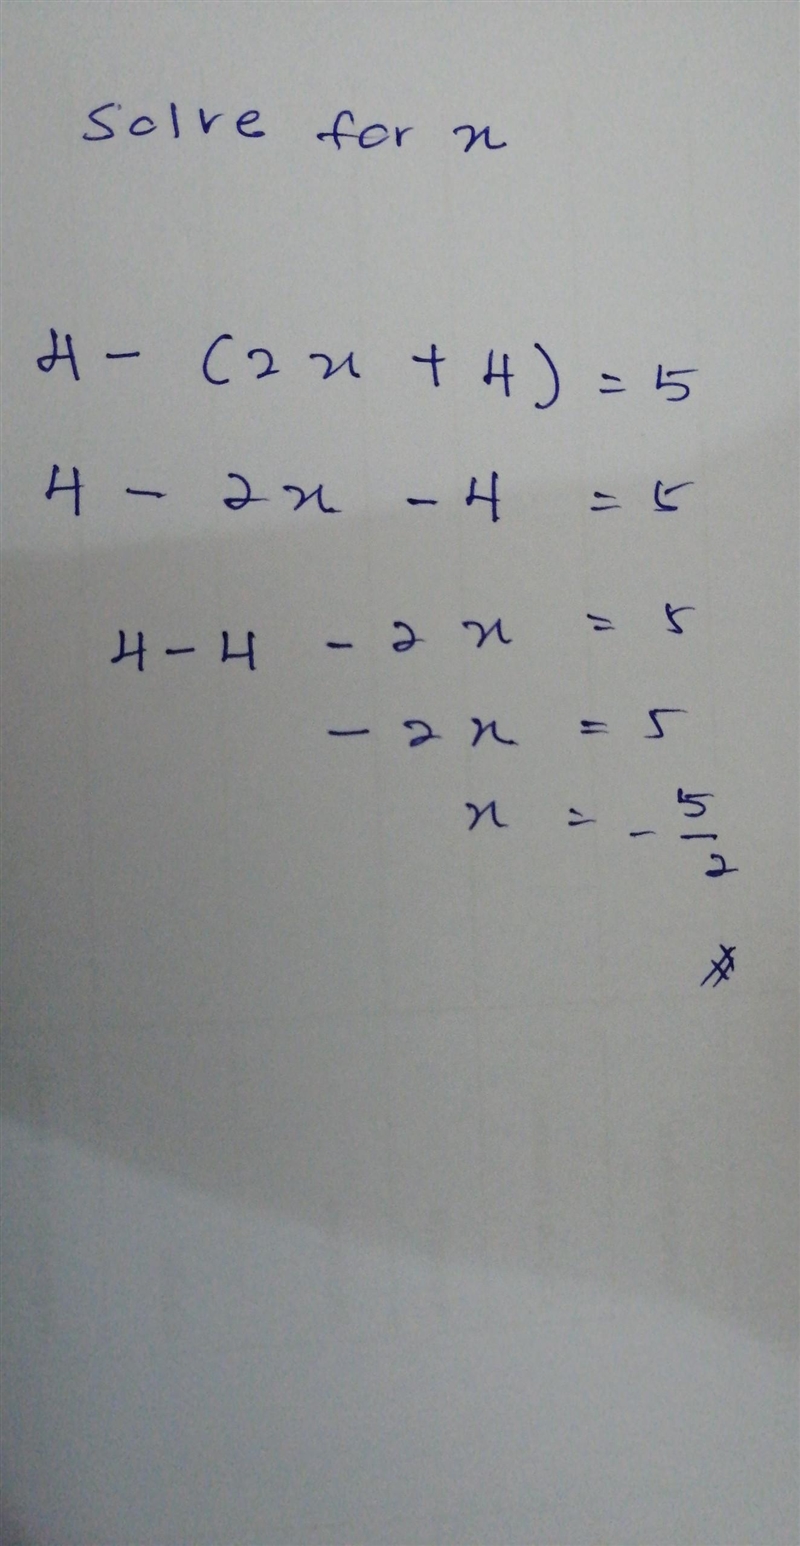 Solve for x
4 - (2x + 4) = 5
4 - 2x - 4 = 5
4 - 4 - 2x = 5
- 2x = 5
x = - 5/2